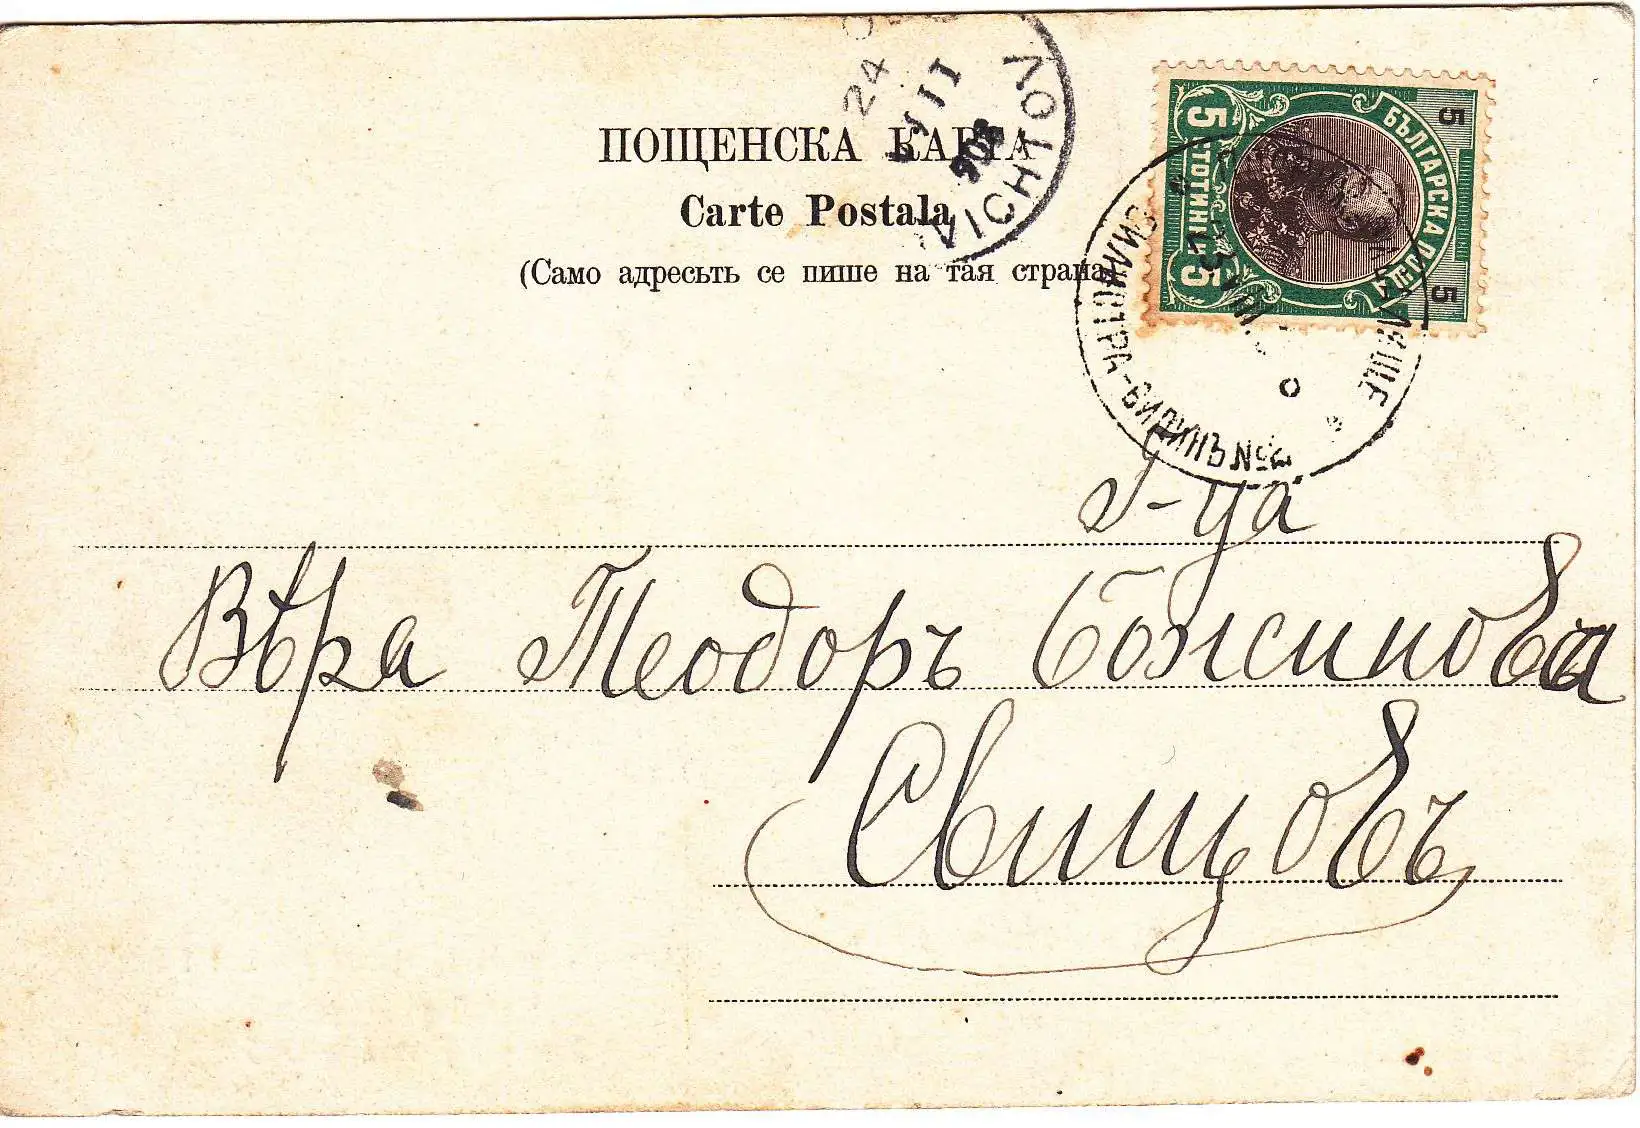 ПОЩЕНСКА КАРТА
Carte Postala
(Само адресътъ се пише на тая страна)
24
VII
VICHTOV
5 БЪЛГАРСКА ПОЩА 5
5 СТОТИНКИ 5
СИЛИСТРЪ-ВИДИНЪ №
23 VII
Г-ца
Вѣра Теодоръ Божинова
Свищовъ